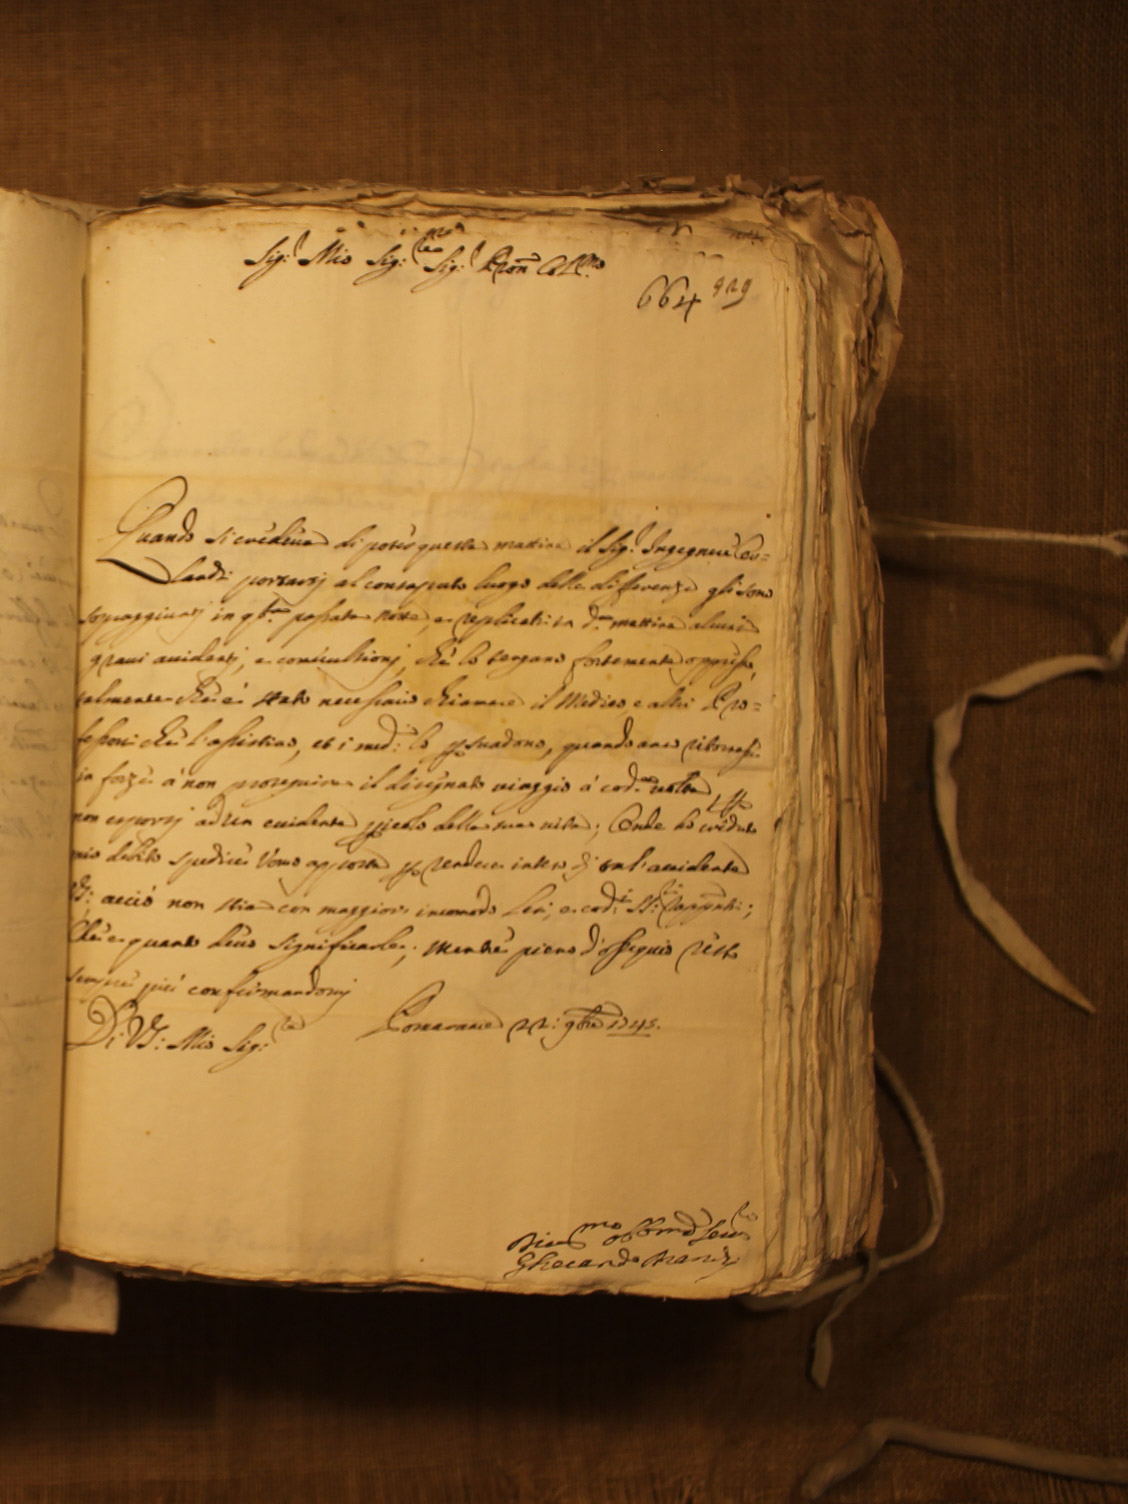 Sig.r Mio Sig.re Sig.r Pron Coll.mo
664 929
Quando si credeva di poter questa mattina il Sig.r Ingegnere
portarsj al consaputo luogo delle differenze gli sono
sopraggiunti in q.ta passata notte, e replicati in d.a mattina alcuni
gravi accidentj, e convulsionj, che lo tengano fortemente oppresso,
talmente che è stato necessario chiamare il Medico e altri Pro=
fessori che l'assistino, et i med.i lo persuadono, quando anco ritornasse
in forze à non proseguire il disegnato viaggio à cod.a volta per
non esporsj ad un evidente pericolo della sua vita; Onde ho creduto
mio debito spedire Uomo apposta per rendere inteso di tal'accidente
VS: acciò non stia con maggior incomodo Lei, e cod.i SS.ri
Che è quanto devo significarle; mentre pieno d'ossequio resto
sempre più confirmandomj
Di VS: Mio Sig.re Pomarance 22: 9bre 1745.
mo obb.mo Ser.re